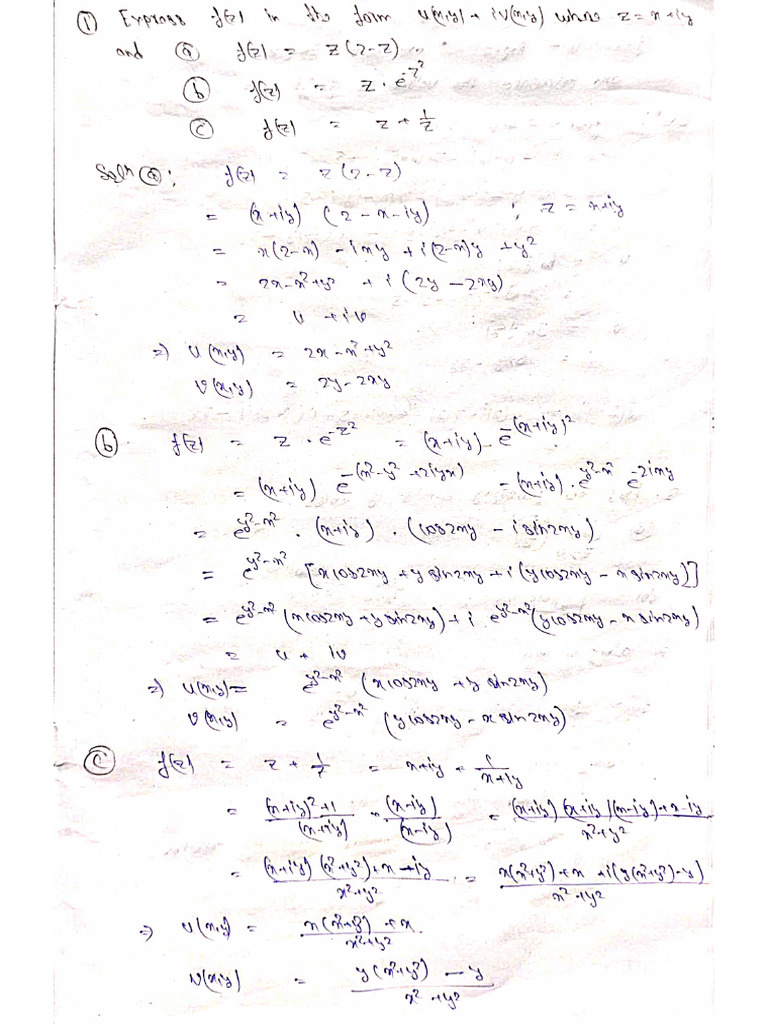 ① Express f(z) in the form u(x,y) + iv(x,y) where z = x+iy
and ⓐ f(z) = z(2-z).
ⓑ f(z) = z·e^{-z²}
ⓒ f(z) = z + 1/z
Soln ⓐ; f(z) = z(2-z)
= (x+iy) (2-x-iy) ; z = x+iy
= x(2-x) - ixy + i(2-x)y + y²
= 2x-x²+y² + i(2y-2xy)
= u + iv
⇒ u(x,y) = 2x-x²+y²
v(x,y) = 2y-2xy
ⓑ f(z) = z·e^{-z²} = (x+iy)·e^{-(x+iy)²}
= (x+iy) e^{-(x²-y²+2iyx)} = (x+iy)·e^{y²-x²} e^{-2ixy}
= e^{y²-x²}·(x+iy)·(cos2xy - i sin2xy)
= e^{y²-x²} [xcos2xy + y sin2xy + i(ycos2xy - x sin2xy)]
= e^{y²-x²}(xcos2xy + y sin2xy) + i e^{y²-x²}(ycos2xy - x sin2xy)
= u + iv
⇒ u(x,y) = e^{y²-x²} (xcos2xy + y sin2xy)
v(x,y) = e^{y²-x²} (ycos2xy - x sin2xy)
ⓒ f(z) = z + 1/z = x+iy + 1/(x+iy)
= ((x+iy)²+1)/(x+iy) × (x-iy)/(x-iy) = ((x+iy)(x+iy)(x-iy)+x-iy)/(x²+y²)
= ((x+iy)(x²+y²)+x-iy)/(x²+y²) = (x(x²+y²)+x+i(y(x²+y²)-y))/(x²+y²)
⇒ u(x,y) = (x(x²+y²)+x)/(x²+y²)
v(x,y) = (y(x²+y²)-y)/(x²+y²)